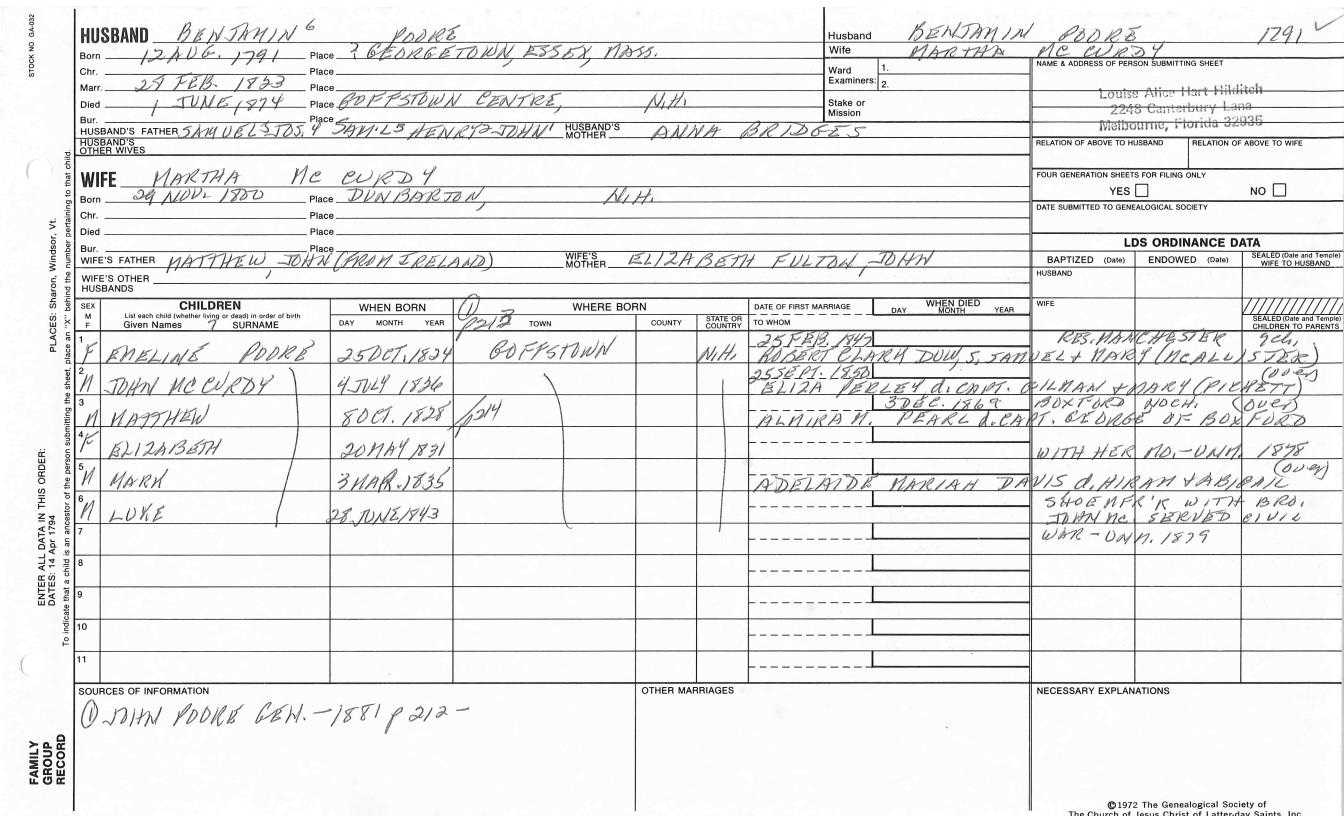 STOCK NO. GA-032
HUSBAND BENJAMIN 6 POORE
Born 12 AUG. 1791 Place ? GEORGETOWN, ESSEX, MASS.
Chr. Place
Marr. FEB. 1823 Place
Died 1 JUNE, 1874 Place GOFFSTOWN CENTRE, N.H.
Bur. Place
HUSBAND'S FATHER SAMUEL 5 JOS. 4 SAM'L 3 HENRY 2 JOHN 1 HUSBAND'S MOTHER ANNA BRIDGES
HUSBAND'S OTHER WIVES
WIFE MARTHA Mc CURDY
Born 29 NOV. 1800 Place DUNBARTON, N.H.
Chr. Place
Died Place
Bur. Place
WIFE'S FATHER MATTHEW, JOHN (FROM IRELAND) WIFE'S MOTHER ELIZABETH FULTON, JOHN
WIFE'S OTHER HUSBANDS
Husband BENJAMIN POORE 1791 ✓
Wife MARTHA MC CURDY
Ward Examiners: 1.
2.
Stake or Mission
NAME & ADDRESS OF PERSON SUBMITTING SHEET
Louise Alice Hart Hilditch
2248 Canterbury Lane
Melbourne, Florida 32935
RELATION OF ABOVE TO HUSBAND RELATION OF ABOVE TO WIFE
FOUR GENERATION SHEETS FOR FILING ONLY
YES NO
DATE SUBMITTED TO GENEALOGICAL SOCIETY
LDS ORDINANCE DATA
BAPTIZED (Date) ENDOWED (Date) SEALED (Date and Temple) WIFE TO HUSBAND
HUSBAND
WIFE
SEALED (Date and Temple) CHILDREN TO PARENTS
SEX M F
CHILDREN
List each child (whether living or dead) in order of birth
Given Names 7 SURNAME
WHEN BORN
DAY MONTH YEAR
① p213
WHERE BORN
TOWN COUNTY STATE OR COUNTRY
DATE OF FIRST MARRIAGE
TO WHOM
WHEN DIED
DAY MONTH YEAR
1 F EMELINE POORE 25 OCT. 1824 GOFFSTOWN N.H. 25 FEB. 1847 RES. MANCHESTER 9ch.
ROBERT CLARK DOW, S. SAMUEL + MARY (McALLISTER)
2 M JOHN MC CURDY 4 JULY 1826 25 SEPT. 1850 (over)
ELIZA PERLEY d. CAPT. GILMAN + MARY (PICKETT)
3 M MATTHEW 8 OCT. 1828 /p214 3 DEC. 1869 BOXFORD NOCH. (over)
ALMIRA M. PEARL d. CAPT. GEORGE OF BOXFORD
4 F ELIZABETH 20 MAY 1831 WITH HER MO.-UNM. 1878
5 M MARK 3 MAR. 1835 (over)
ADELAIDE MARIAH DAVIS d. HIRAM + ABIGAIL
6 M LUKE 28 JUNE 1843 SHOE MFR'K WITH BRO.
JOHN Mc. SERVED CIVIL
7 WAR - UNM. 1879
8
9
10
11
SOURCES OF INFORMATION
① JOHN POORE GEN. -1881 p 212 -
OTHER MARRIAGES
NECESSARY EXPLANATIONS
©1972 The Genealogical Society of
The Church of Jesus Christ of Latter-day Saints, Inc.
PLACES: Sharon, Windsor, Vt.
ENTER ALL DATA IN THIS ORDER:
DATES: 14 Apr 1794
To indicate that a child is an ancestor of the person submitting the sheet, place an "X" behind the number pertaining to that child.
FAMILY
GROUP
RECORD